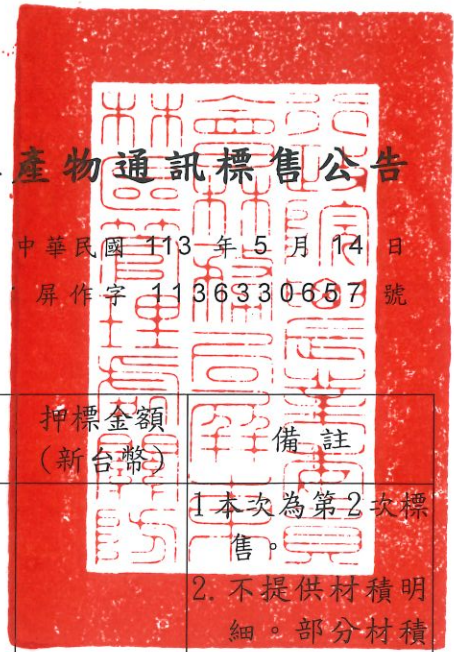 產物通訊標售公告
中華民國 113 年 5 月 14 日
屏作字 1136330657 號
押標金額
(新台幣)
備註
1 本次為第2次標
售。
2. 不提供材積明
細。部分材積